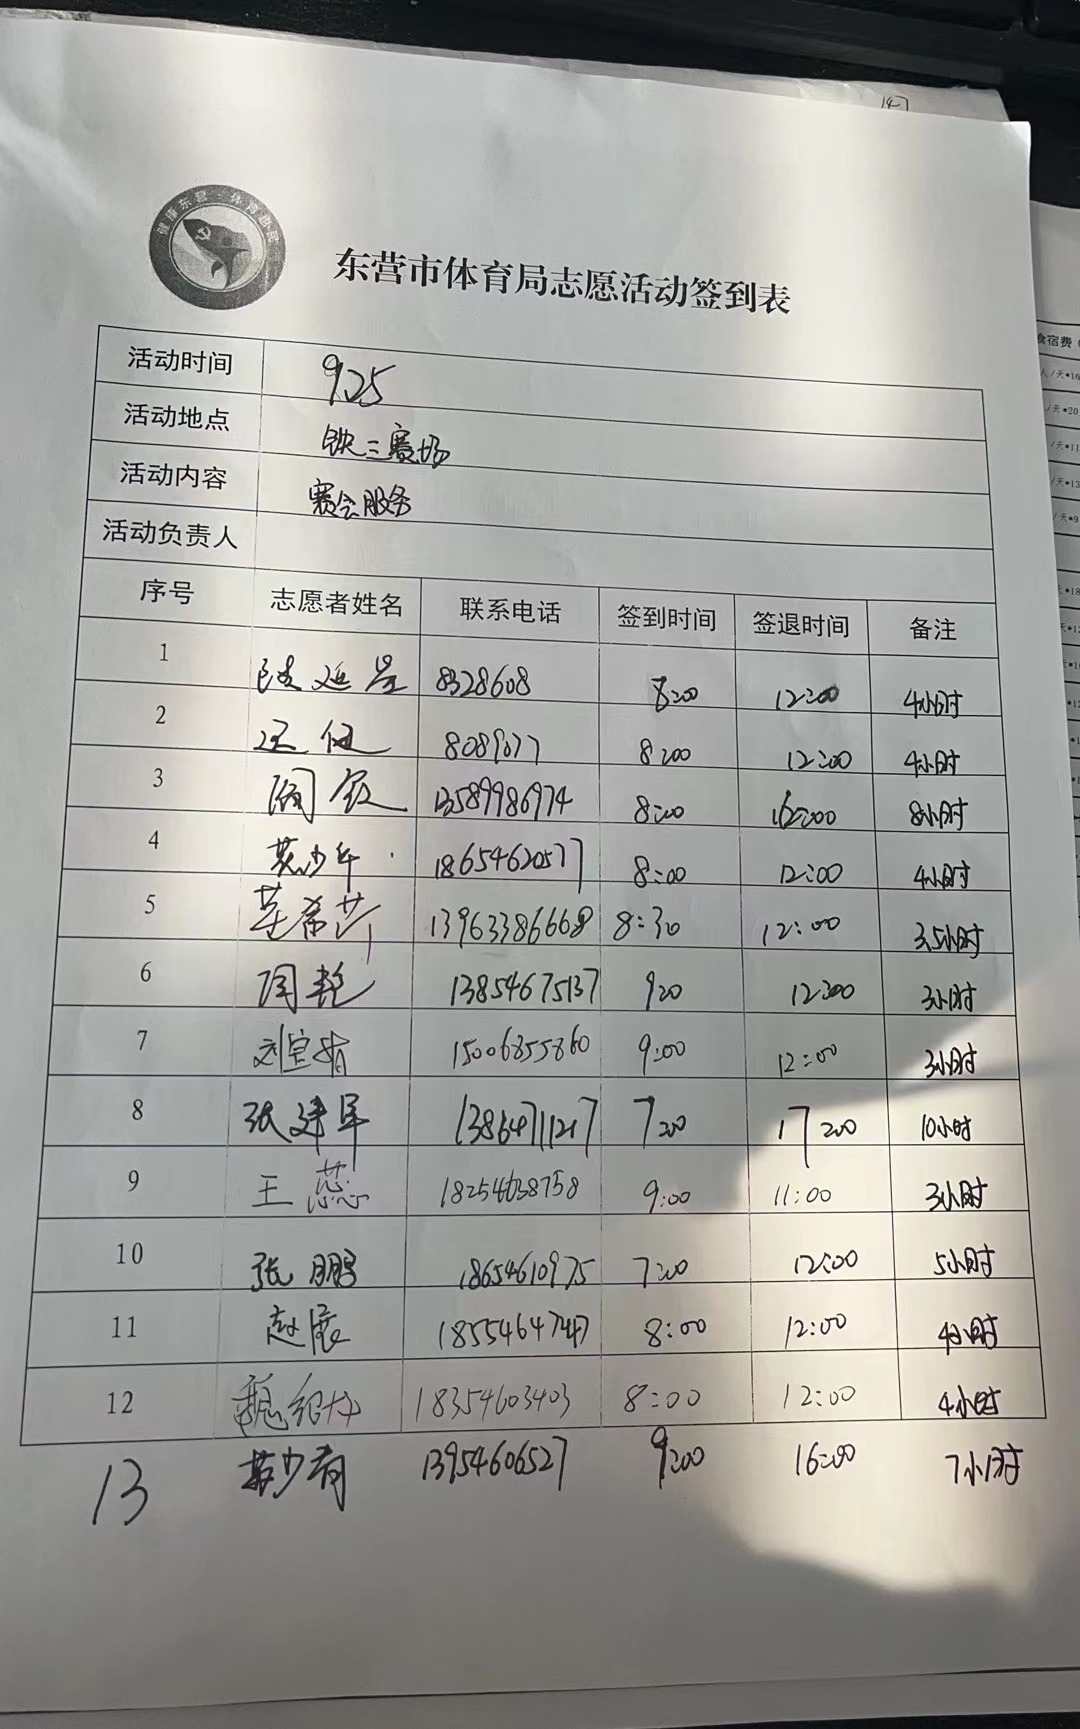 147
健康东营·体育惠民
东营市体育局志愿活动签到表
活动时间 9.25
活动地点 铁三赛场
活动内容 赛会服务
活动负责人
序号 志愿者姓名 联系电话 签到时间 签退时间 备注
1 延星 8328608 8:00 12:00 4小时
2 王健 8089077 8:00 12:00 4小时
3 阎毅 13589986974 8:00 16:00 8小时
4 英少年 18654620577 8:00 12:00 4小时
5 希莎 13963386668 8:30 12:00 3.5小时
6 周艳 13854675137 9:00 12:00 3小时
7 刘宝娟 15006855860 9:00 12:00 3小时
8 张建军 13864711217 7:00 17:00 10小时
9 王蕊 18254638758 9:00 11:00 3小时
10 张鹏 18654610975 7:00 12:00 5小时
11 赵展 18554647747 8:00 12:00 4小时
12 魏绍 18354603403 8:00 12:00 4小时
13 少有 13954606527 9:00 16:00 7小时
食宿费
人/天*10
/天*20
/天*11
/天*13
/天*9
天*18